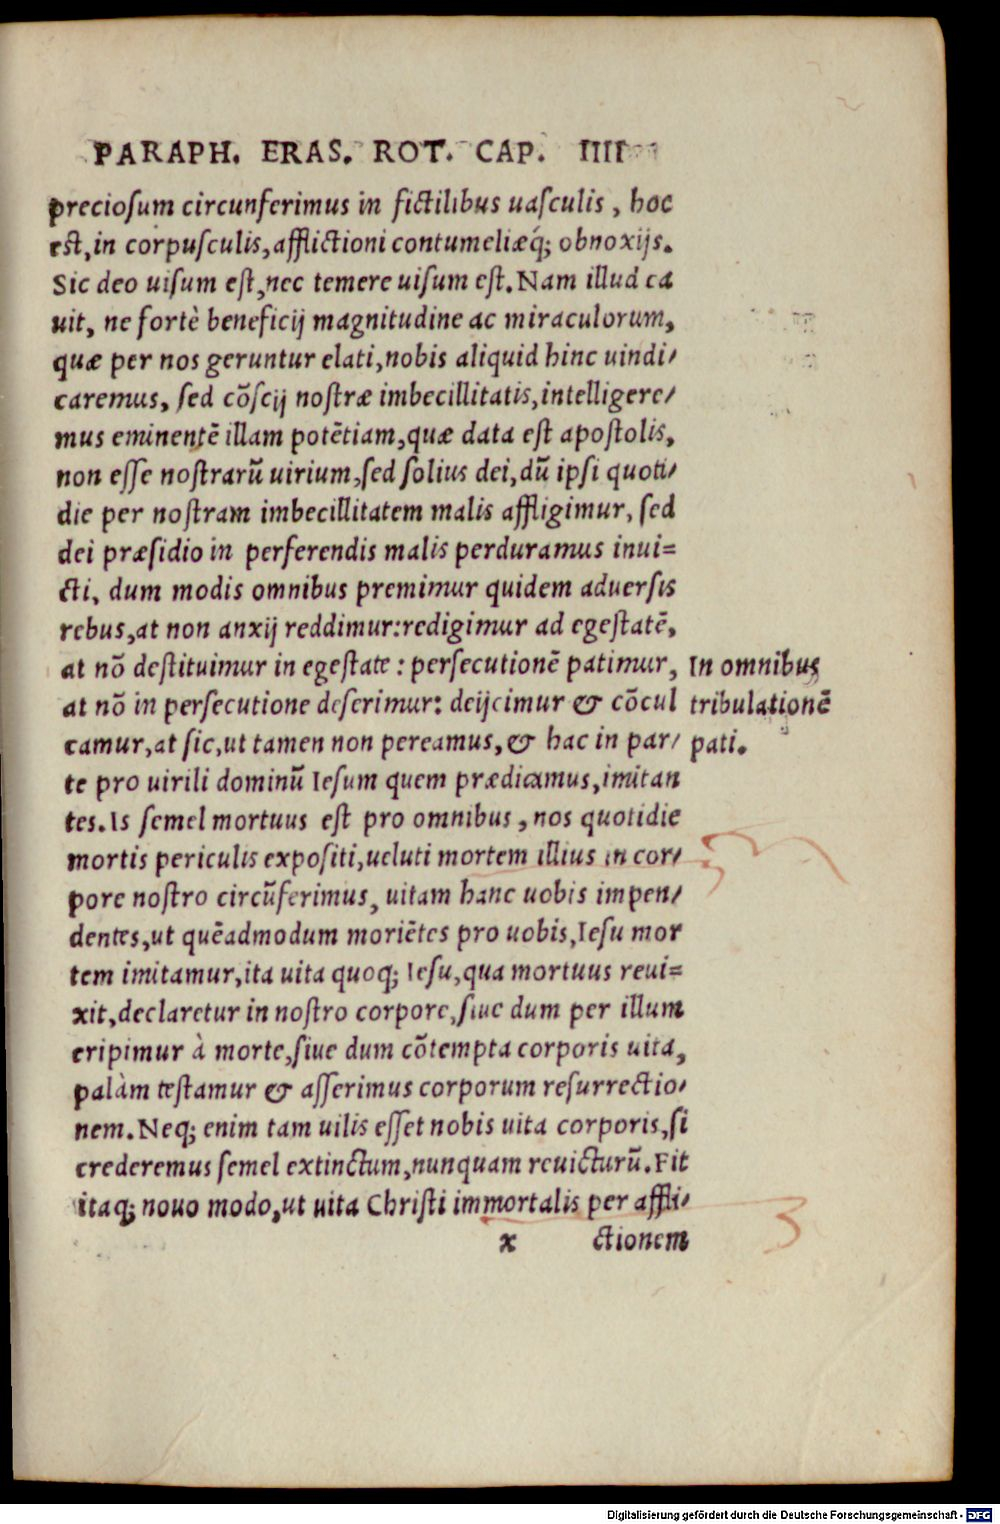 PARAPH. ERAS. ROT. CAP. IIII
preciosum circunferimus in fictilibus uasculis, hoc
est, in corpusculis, afflictioni contumeliæq́; obnoxijs.
Sic deo uisum est, nec temere uisum est. Nam illud ca
uit, ne fortè beneficij magnitudine ac miraculorum,
quæ per nos geruntur elati, nobis aliquid hinc uindi/
caremus, sed cõscij nostræ imbecillitatis, intelligere/
mus eminentẽ illam potẽtiam, quæ data est apostolis,
non esse nostrarũ uirium, sed solius dei, dũ ipsi quoti/
die per nostram imbecillitatem malis affligimur, sed
dei præsidio in perferendis malis perduramus inui=
cti, dum modis omnibus premimur quidem aduersis
rebus, at non anxij reddimur: redigimur ad egestatẽ,
at nõ destituimur in egestate : persecutionẽ patimur,
In omnibus
at nõ in persecutione deserimur: deijcimur & cõcul
tribulationẽ
camur, at sic, ut tamen non pereamus, & hac in par/
pati.
te pro uirili dominũ Iesum quem prædicamus, imitan
tes. Is semel mortuus est pro omnibus, nos quotidie
mortis periculis expositi, ueluti mortem illius in cor/
pore nostro circũferimus, uitam hanc uobis impen/
dentes, ut quẽadmodum moriẽtes pro uobis, Iesu mor
tem imitamur, ita uita quoq; Iesu, qua mortuus reui=
xit, declaretur in nostro corpore, siue dum per illum
eripimur à morte, siue dum cõtempta corporis uita,
palàm testamur & asserimus corporum resurrectio/
nem. Neq; enim tam uilis esset nobis uita corporis, si
crederemus semel extinctum, nunquam reuicturũ. Fit
itaq; nouo modo, ut uita Christi immortalis per affli/
x ctionem
3
Digitalisierung gefördert durch die Deutsche Forschungsgemeinschaft - DFG